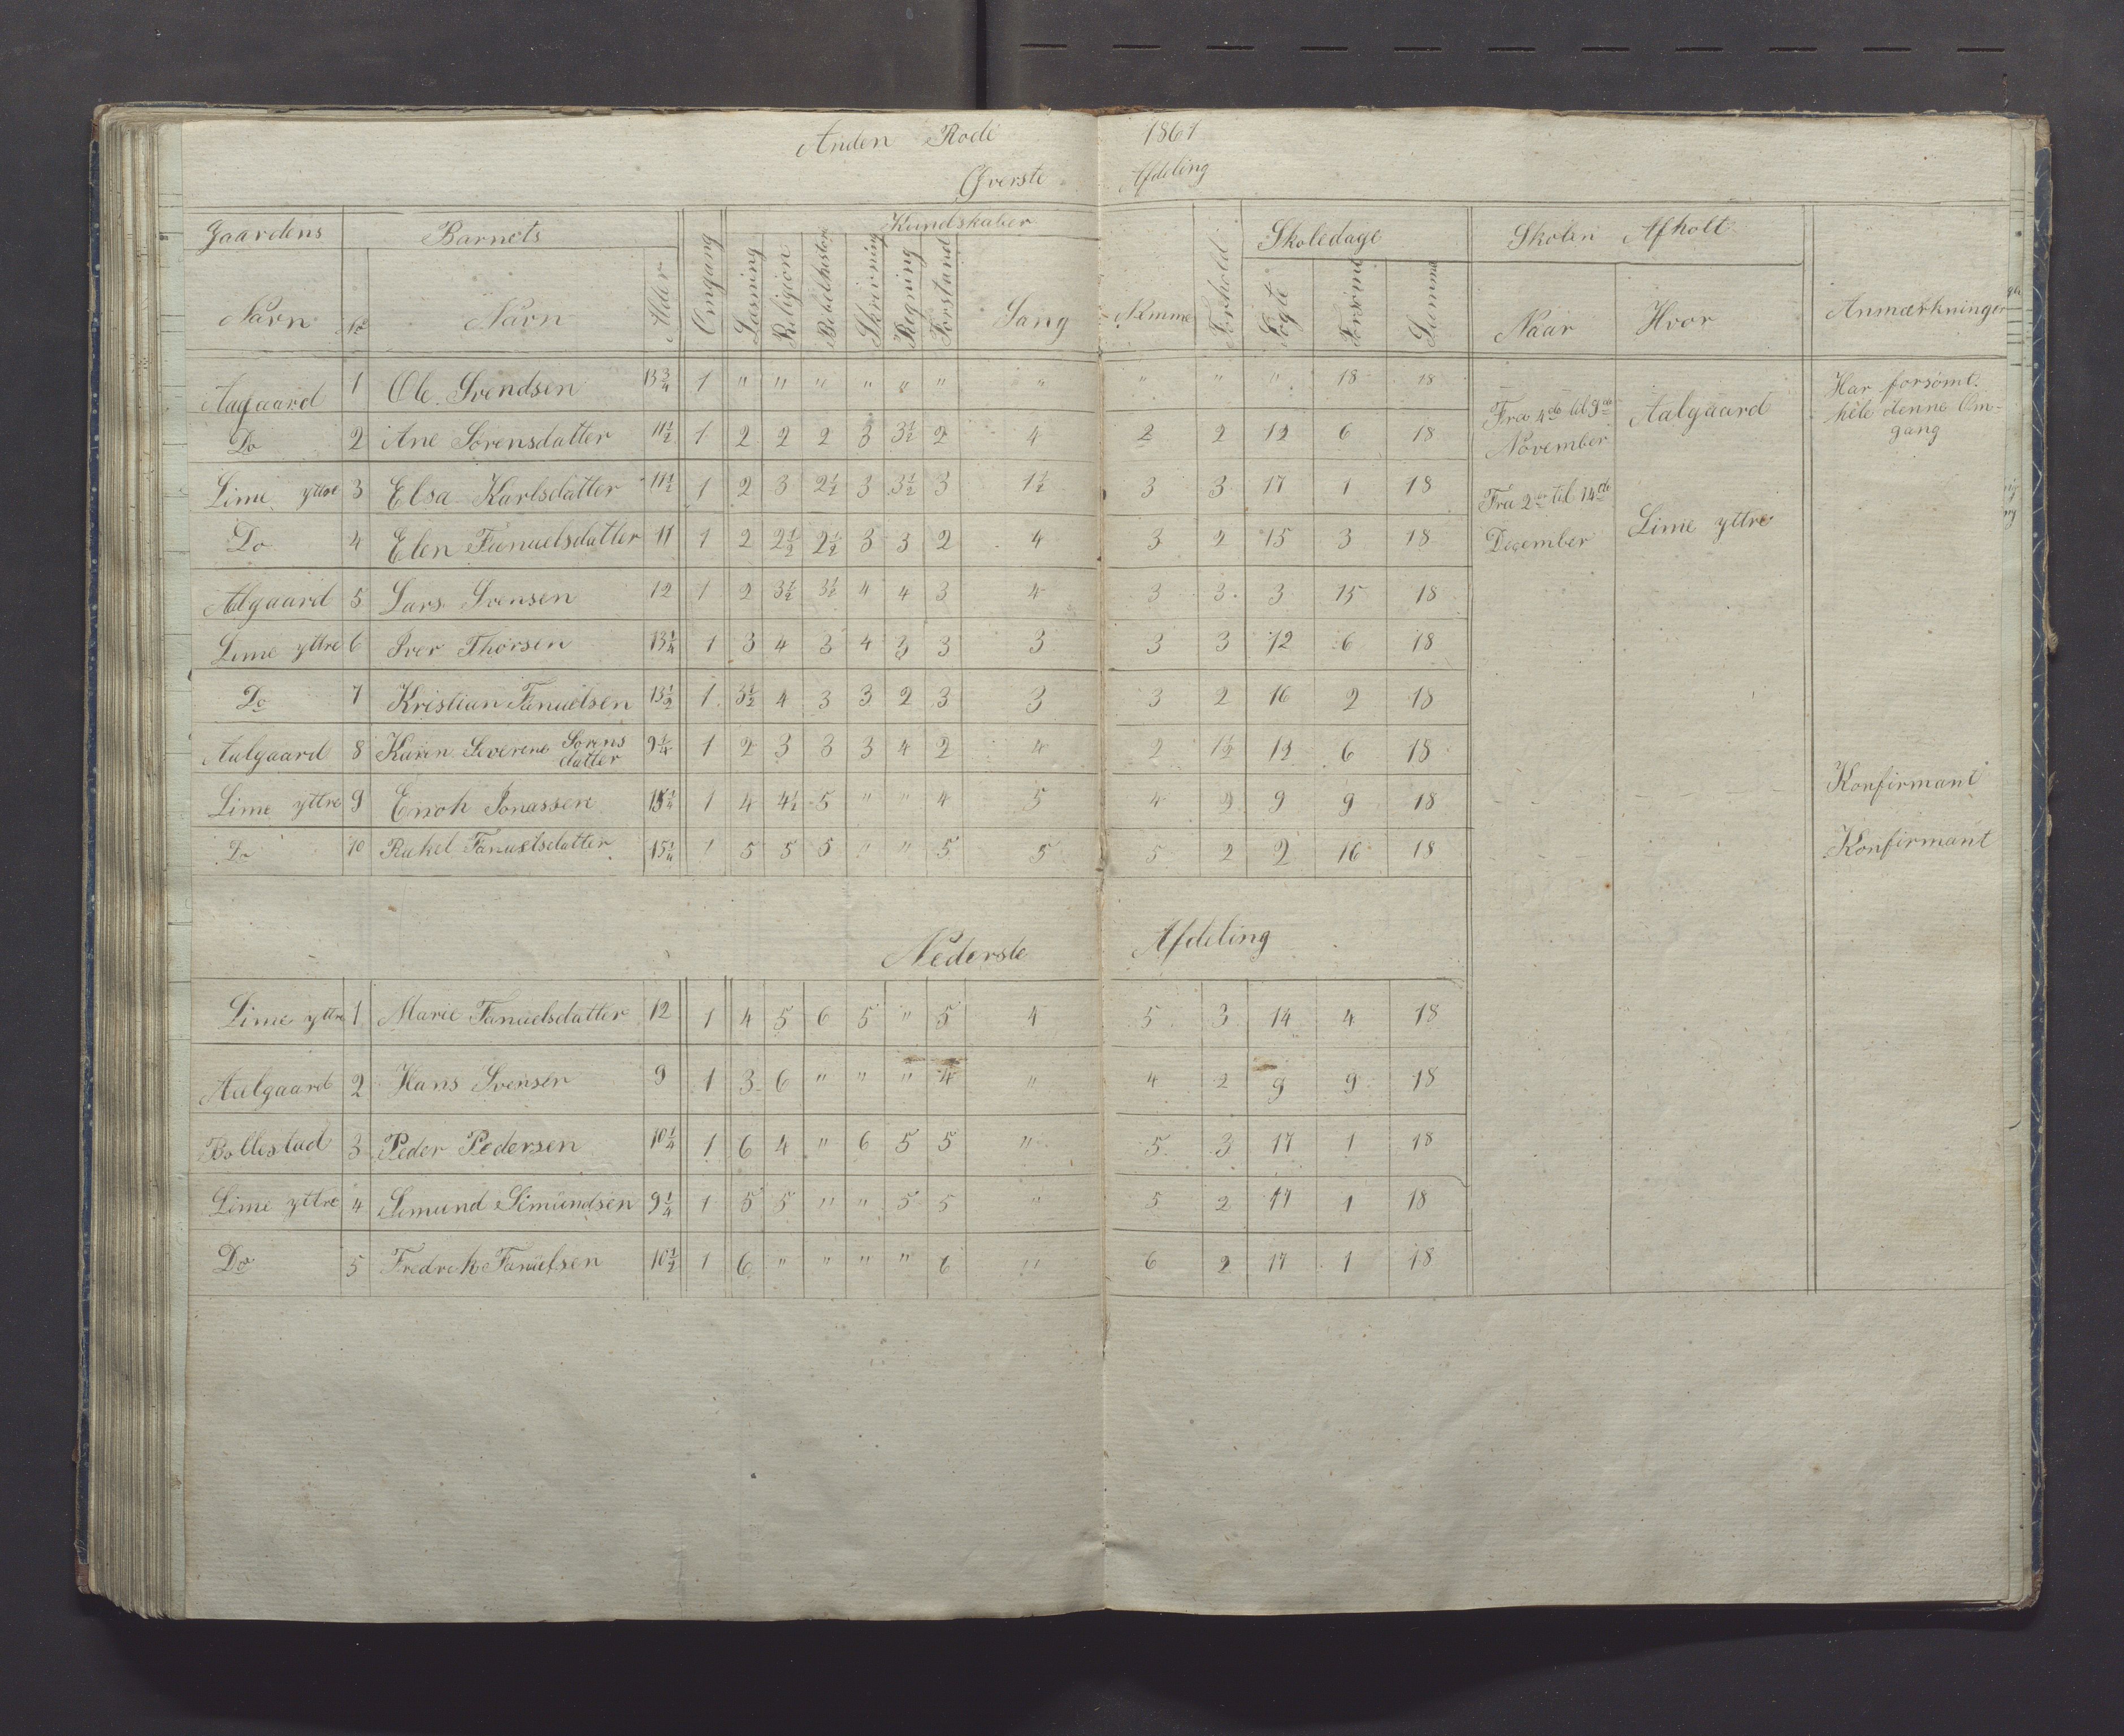 Anden Rode 1861
Øverste Afdeling
Gaardens Barnets Kundskaber Skoledage Skolen Afholt
Navn No Navn Alder Omgang Læsning Religion Bibelhistorie Skrivning Regning Forstand Sang Nemme Forhold Søgte Forsömte Summa Naar Hvor Anmærkninger
Aagaard 1 Ole Svendsen 13 3/4 1 " " " " " " " " " " 18 18 Har forsömt
Do 2 Ane Sörensdatter 11 1/2 1 2 2 2 3 3 1/2 2 4 2 2 12 6 18 Fra 4de til 9de November Aalgaard hele denne Om-
gang
Lime yttre 3 Elsa Karlsdatter 11 1/2 1 2 3 2 1/2 3 3 1/2 3 1 1/2 3 3 17 1 18 Fra 2den til 14de
Do 4 Elen Fanuelsdatter 11 1 2 2 1/2 2 1/2 3 3 2 4 3 2 15 3 18 December Lime yttre
Aalgaard 5 Lars Svensen 12 1 2 3 1/2 3 1/2 4 4 3 4 3 3 3 15 18
Lime yttre 6 Iver Thorsen 13 1/4 1 3 4 3 4 3 3 3 3 3 12 6 18
Do 7 Kristian Fanuelsen 13 1/2 1 3 1/2 4 3 3 2 3 3 3 2 16 2 18
Aalgaard 8 Karen Severene Sörens
datter 9 1/4 1 2 3 3 3 4 2 4 2 1 1/2 12 6 18
Lime yttre 9 Enok Jonassen 15 1/4 1 4 4 1/2 5 " " 4 5 4 2 9 9 18 Konfirmant
Do 10 Rakel Fanuelsdatter 15 1/4 1 5 5 5 " " 5 5 5 2 2 16 18 Konfirmant
Nederste Afdeling
Lime yttre 1 Marie Fanuelsdatter 12 1 4 5 6 5 " 5 4 5 3 14 4 18
Aalgaard 2 Hans Svensen 9 1 3 6 " " " 4 " 4 2 9 9 18
Bollestad 3 Peder Pedersen 10 1/4 1 6 4 " 6 5 5 " 5 3 17 1 18
Lime yttre 4 Simund Simundsen 9 1/4 1 5 5 " " 5 5 " 5 2 17 1 18
Do 5 Fredrek Fanuelsen 10 1/2 1 6 " " " " 6 " 6 2 17 1 18